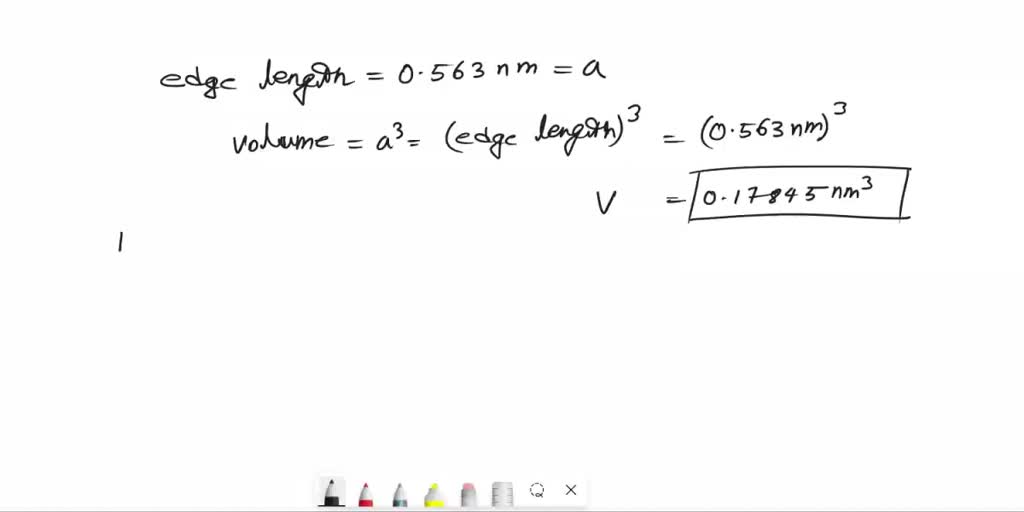 edge length = 0.563 nm = a
volume = a³ = (edge length)³ = (0.563 nm)³
V = 0.17845 nm³